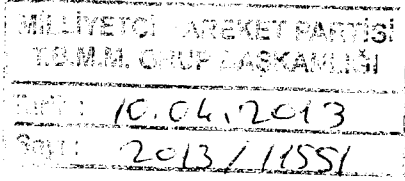 MİLLİYETÇİ HAREKET PARTİSİ
T.B.M.M. GRUP BAŞKANLIĞI
Tarih : 10.04.2013
Sayı : 2013/11551